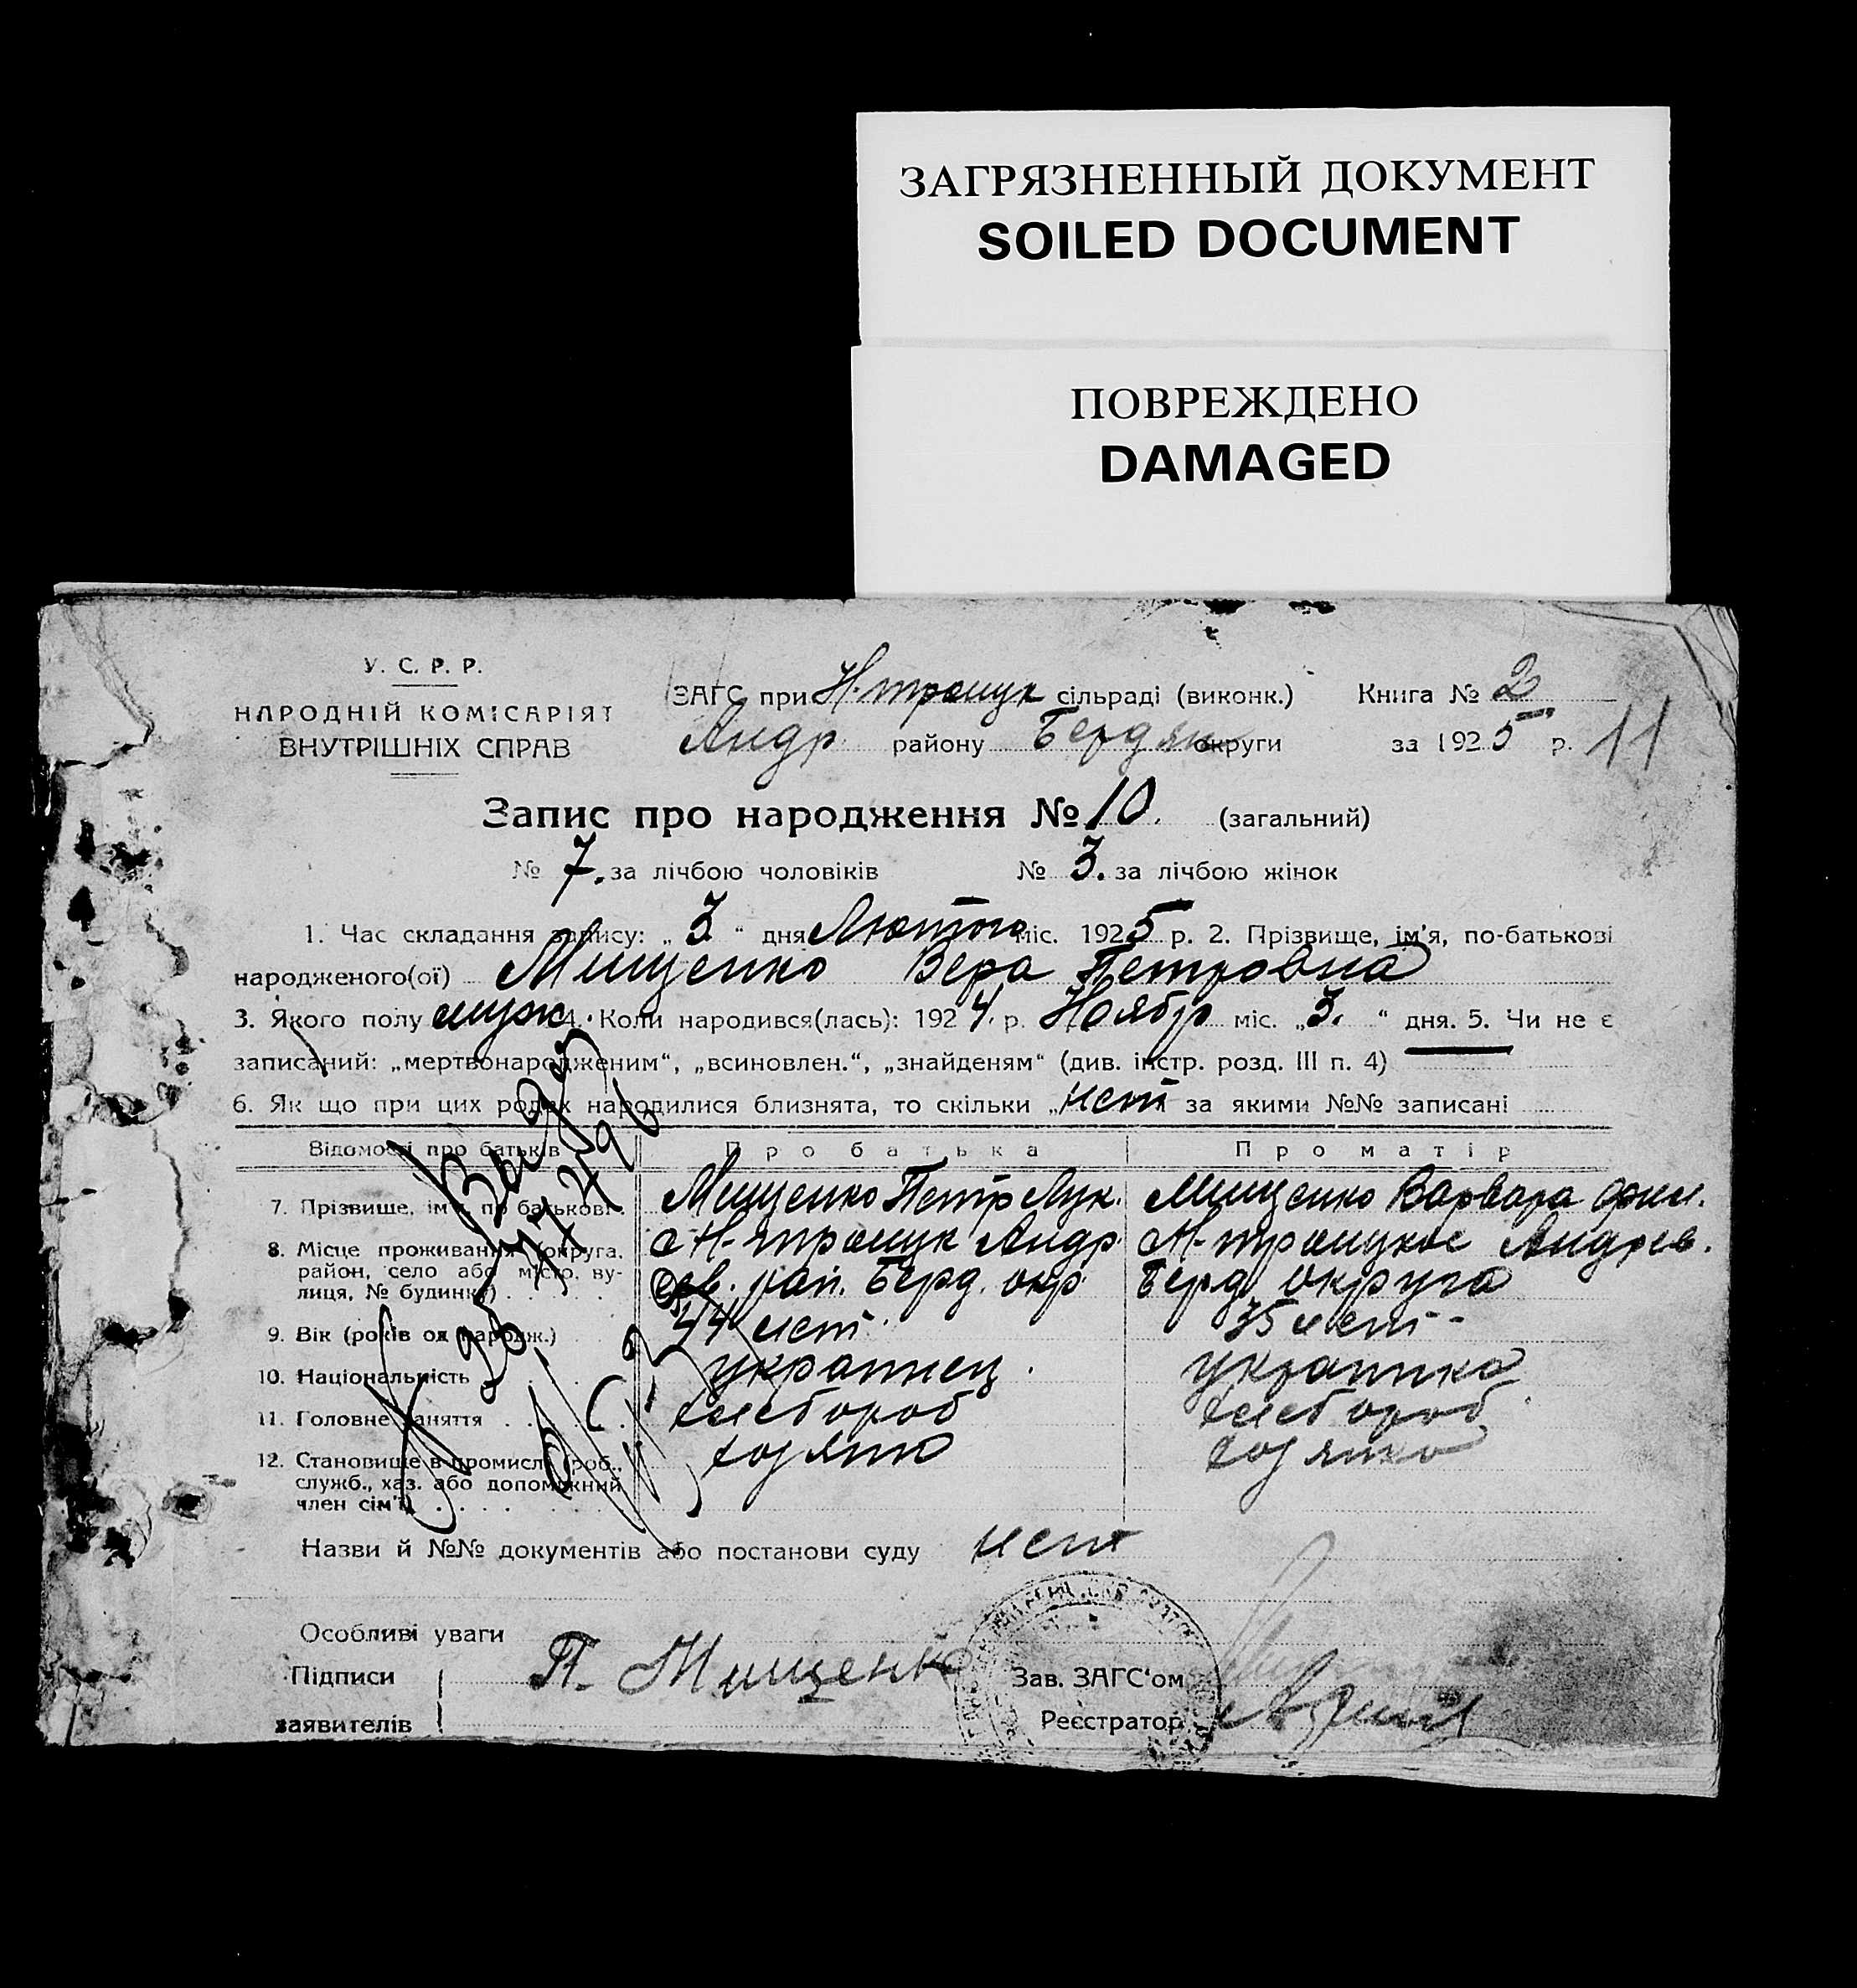 ЗАГРЯЗНЕННЫЙ ДОКУМЕНТ
SOILED DOCUMENT
ПОВРЕЖДЕНО
DAMAGED
У. С. Р. Р.
НАРОДНІЙ КОМІСАРІЯТ
ВНУТРІШНІХ СПРАВ
ЗАГС при Н-троицк сільраді (виконк.) Книга № 2
Андр району Бердян округи за 1925 р. 11
Запис про народження № 10. (загальний)
№ 7. за лічбою чоловіків № 3. за лічбою жінок
1. Час складання запису: „ 3 “ дня Лютого міс. 1925 р. 2. Прізвище, ім’я, по-батькові
народженого(ої) Мищенко Вера Петровна
3. Якого полу муж. 4. Коли народився(лась): 1924. р. Ноябр міс. „3. “ дня. 5. Чи не є
записаний: „мертвонародженим“, „всиновлен.“, „знайденям“ (див. інстр. розд. III п. 4)
6. Як що при цих родах народилися близнята, то скільки „нет за якими №№ записані
Відомості про батьків Про батька Про матір
7. Прізвище, ім’я, по батькові Мищенко Петр Лук. Мищенко Варвара
8. Місце проживання (округа, с Н-троицк Андр Н-троицкое Андрев.
район, село або місто, ву- рай. Берд. окр Берд округа
лиця, № будинку)
9. Вік (років од народж.) 44 лет 35 лет -
10. Національність украинец. украинка
11. Головне заняття хлебороб хлебороб
12. Становище в промислі (роб., хозяин
служб., хаз. або допоміжний
член сім’ї)
Назви й №№ документів або постанови суду нет
Особливі уваги
Підписи П. Мищенко Зав. ЗАГС‘ом
заявителів Реєстратор